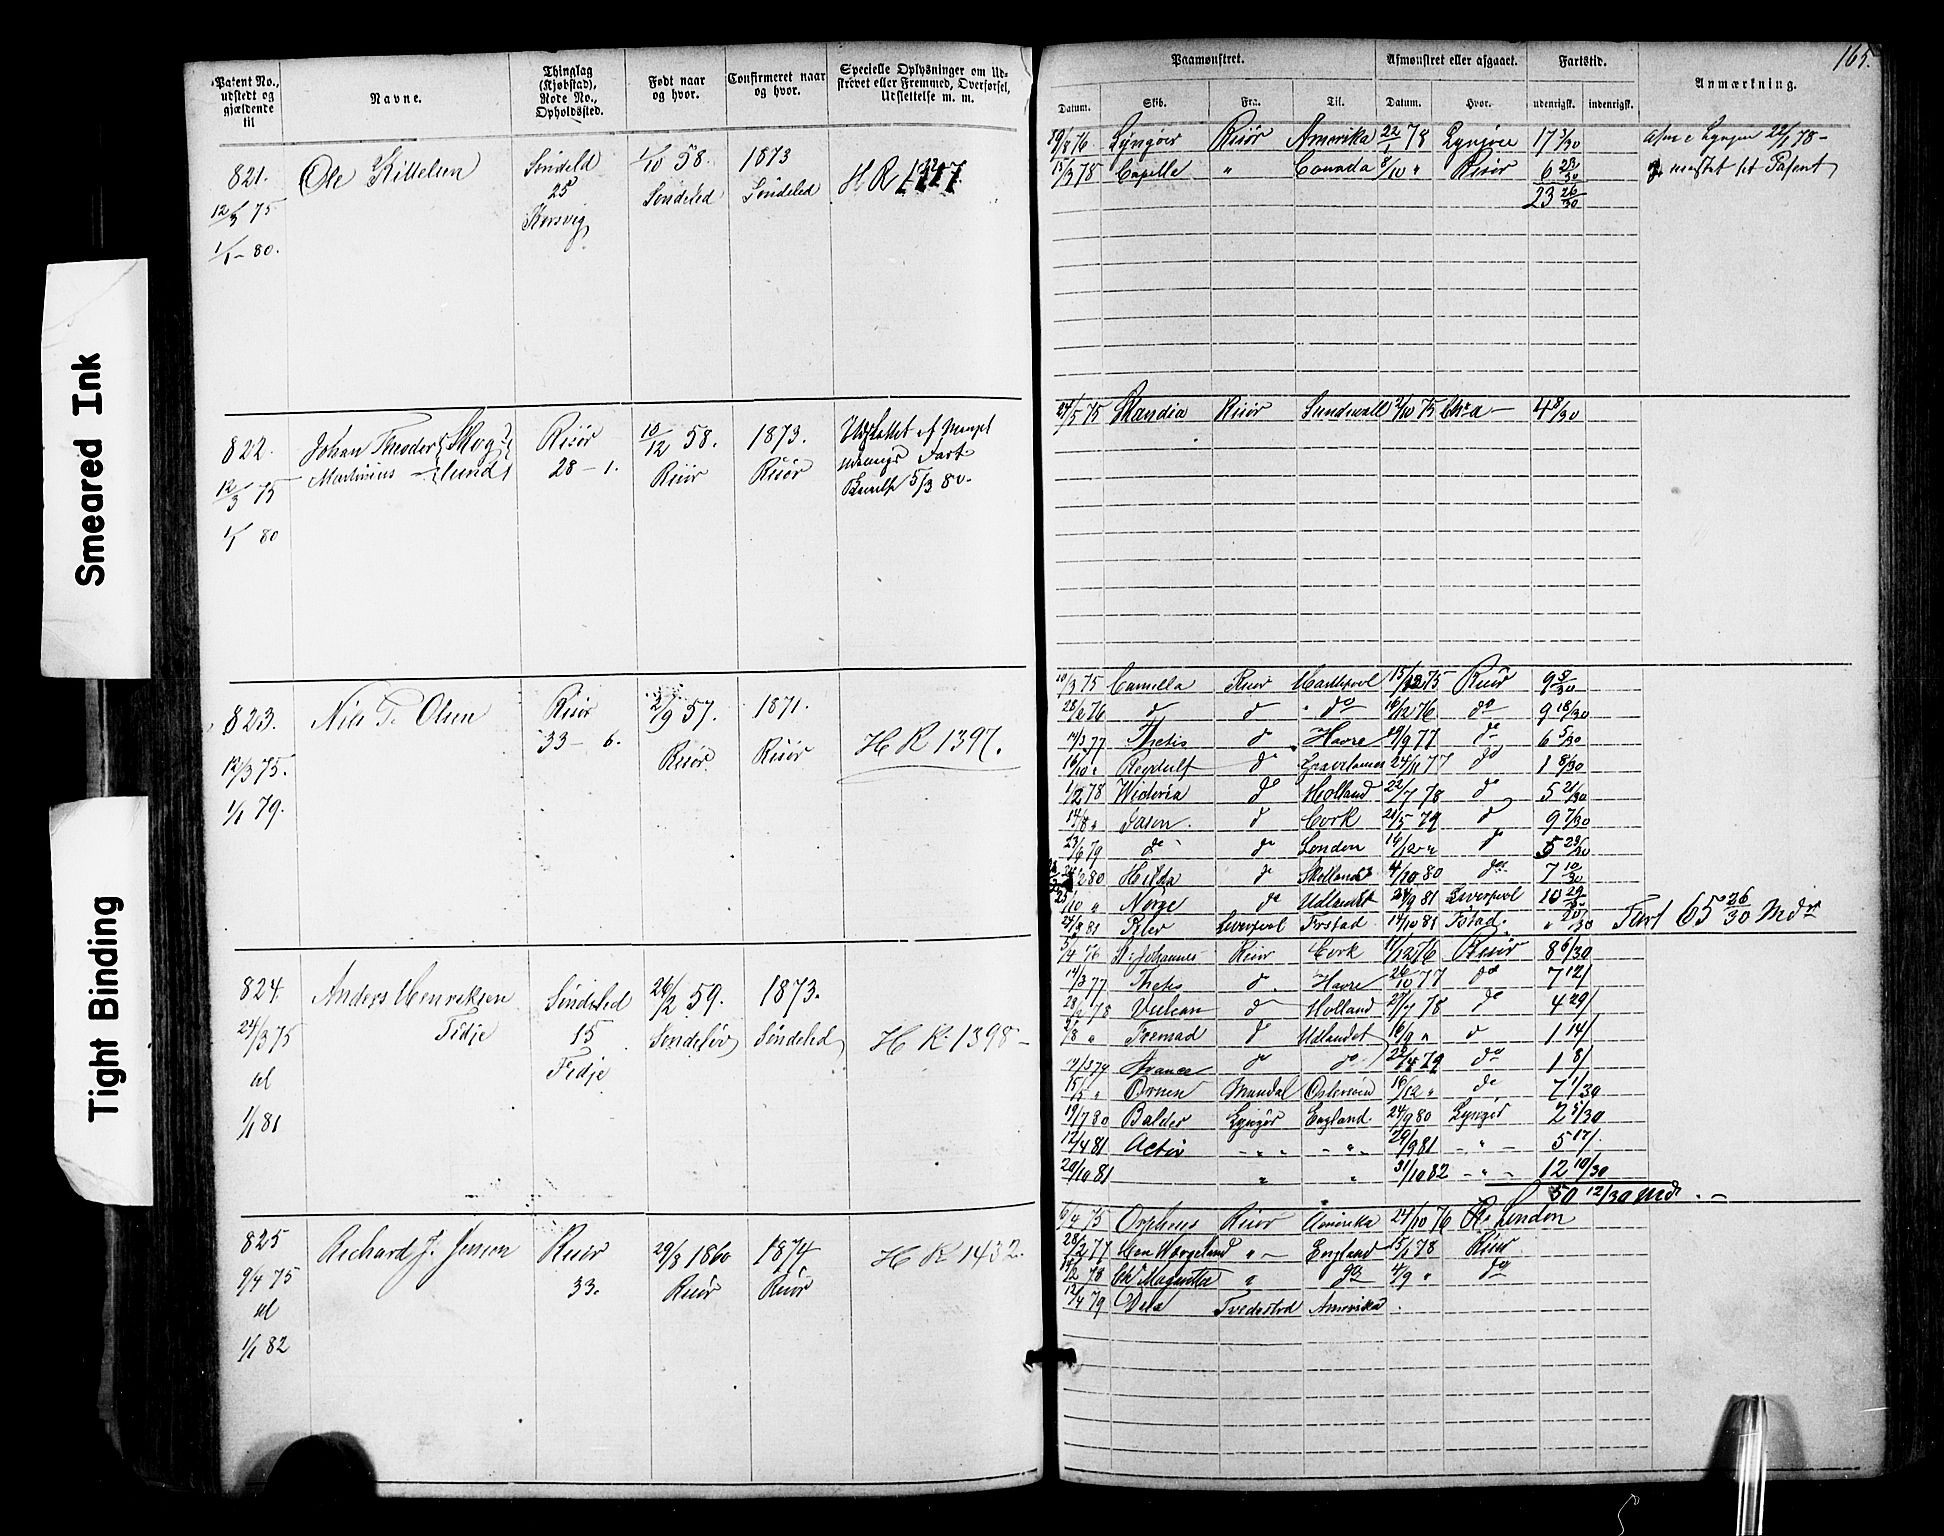 165.
Smeared Ink
Tight Binding
Patent No., udstedt og gjældende til
Navne.
Thinglag (Kjøbstad), Rode No., Opholdssted.
Født naar og hvor.
Confirmeret naar og hvor.
Specielle Oplysninger om Udskrevet eller Fremmed, Overførsel, Udslettelse m. m.
Paamønstret.
Afmønstret eller afgaaet.
Fartstid.
Anmærkning.
Datum. Skib. Fra. Til. Datum. Hvor. udenrigsk. indenrigsk.
821. Ole Kittelsen Søndeled 1/10 58. 1873 H R
12/3 75 25 Søndeled Søndeled
1/1 - 80. Korsvig
76 Lyngør Risør Amerika 22/1 78 Lyngøer 17 3/30 22/1 78 -
15/3 78 Capella " Canada 8/10 " Risør 6 23/30 mistet sit Patent
23 26/30
822. Johan Theodor Skog- Risør 10/12 58. 1873. Udslettet af
12/3 75 Martinius lund 28 - 1. Risør Risør udenrigs Fart
1/1 80 5/3 80.
24/5 75 Skandia Risør Sundsvall 2/10 75 Chr.a - 4 8/30
823. Nils T. Olsen Risør 2/9 57. 1871. H R 1397.
12/3 75. 33 - 6. Risør. Risør
1/1 79.
10/3 75 Camilla Risør Hartlepool 15/12 75 Risør 9 8/30
28/2 76 d d do 16/12 76 do 9 18/30
14/3 77 Thetis d Havre 19/9 77 do 6 5/30
16/10 " d 24/11 77 do 1 8/30
1/2 78 Victoria do Holland 22/7 78 d 5 21/30
14/8 " Jason. d Cork 21/5 79 d 9 7/30
23/6 79 do do London 16/12 " d 5 23/30
2 80 Hilda d Skotland 4/10 80 do 7 10/30
25/10 " Norge do Udlandet 24/9 81 Liverpool 10 29/30
24/9 81 Liverpool 14/10 81 " 20/30 Fart 65 26/30 Mdr
824. Anders Henriksen Søndeled 26/2 59. 1873. H R. 1398 -
24/3 75 Fidje 15 Søndeled Søndeled
til Fidje
1/1 81
5/4 76 St. Johannes Risør Cork 11/12 76 Risør 8 6/30
14/3 77 Thetis d. Havre 26/10 77 do 7 12/
28/2 78 Vulcan d Holland 27/7 78 do 4 29/
2/8 " Fremad d Udlandet 16/9 " d 1 14/
79 d do 79 do 1 8/
15/5 " Ørnen Mandal Østersøen 16/12 " do 7 1/30
19/7 80 Balder Lyngør England 24/9 80 Lyngør 2 5/30
12/4 81 Activ - " " - " - 29/9 81 - " - 5 17/.
20/10 81 " " 31/10 82 - " - 12 10/30
50 12/30 Mdr. -
825 Richard J. Jensen Risør 29/8 1860 1874 H R 1432.
9/4 75 33. Risør Risør
til
1/1 82
6/4 75 Orpheus Risør Amerika 24/10 76 R. London
28/2 77 Wergeland " - England 15/1 78 Risør
14/2 78 " do 4/9 " do
12/4 79 Tvedestrd Amerika.